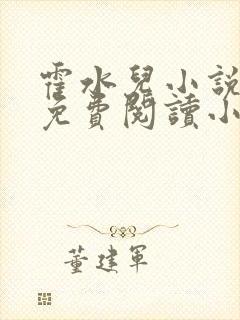 霍水兒小說
免費閱讀小
董建軍